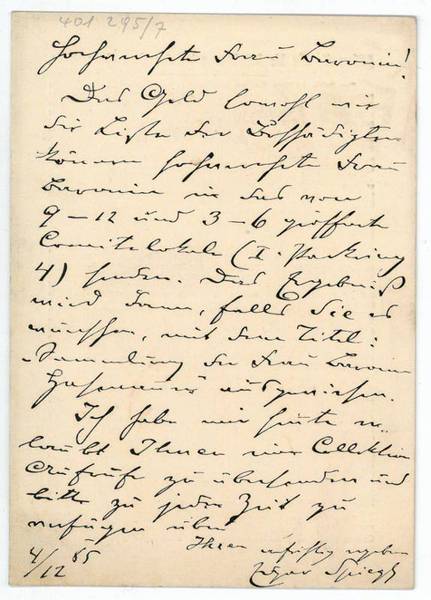 401 295/7
Hochverehrte Frau Baronin!
Das Geld sowohl wie
die Liste der Beschädigten
können hochverehrte Frau
Baronin in das von
9 – 12 und 3 – 6 geöffnete
Comitelokale (I. Parkring
4) senden. Das Ergebniß
wird dann, falls Sie es
wünschen, mit dem Titel:
"Sammlung der Frau Baronin
ausgewiesen.
Ich habe mir heute er-
laubt Ihnen vier Collektion
Aufrufe zu übersenden und
bitte zu jeder Zeit zu
verfügen über
Ihren aufrichtig ergebenen
4/12 85 Edgar Spiegl